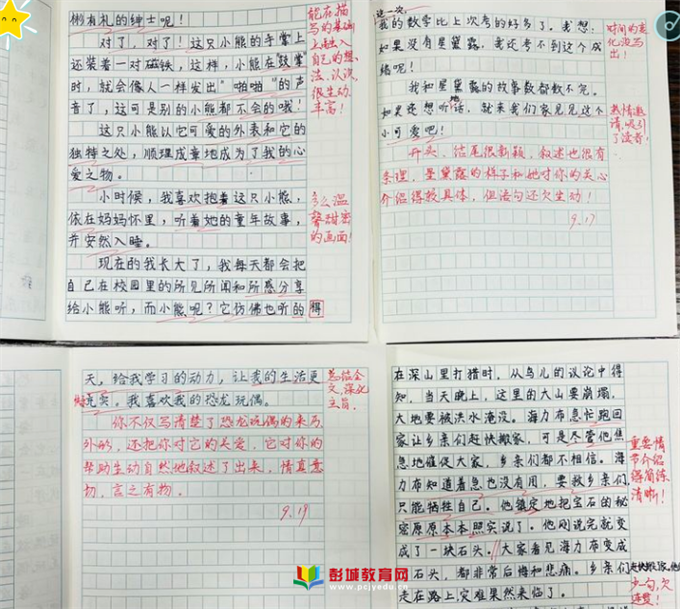 彬有礼的绅士呢！
对了，对了！这只小熊的手掌上
还装着一对磁铁，这样，小熊在鼓掌
时，就会像人一样发出“啪啪”的声
音了，这可是别的小熊都不会的哦！
这只小熊以它可爱的外表和它的
独特之处，顺理成章地成为了我的心
爱之物。
小时候，我喜欢抱着这只小熊，
依在妈妈怀里，听着她的童年故事，
并安然入睡。
现在的我长大了，我每天都会把
自己在校园里的所见所闻和所感分享
给小熊听，而小熊呢？它仿佛也听的
得
能在描
写的基础
上融入
自己的想
法、认识，
很生动、
丰富！
多么温
馨甜密
的画面！
这一次
我的数学比上次考的好多了。我想：
如果没有星黛露，我还考不到这个成
绩呢！
我和星黛露的故事数都数不完。
如果还想听的话，就来我们家见见这个
小可爱吧！
开头、结尾很新颖，叙述也很有
条理，星黛露的样子和她对你的关心
介绍得较具体，但语句还欠生动！
9.17
时间的变
化没写
出！
热情邀
请，吸引
了读者！
天，给我学习的动力，让我的生活更
充实。我喜欢我的恐龙玩偶。
你不仅写清楚了恐龙玩偶的来历、
外形，还把你对它的关爱，它对你的
帮助生动自然地叙述了出来，情真意
切，言之有物。
9.19
总结全
文，深化
主旨。
在深山里打猎时，从鸟儿的议论中得
知，当天晚上，这里的大山要崩塌，
大地要被洪水淹没。海力布急忙跑回
家让乡亲们赶快搬家，可是尽管他焦
急地催促大家，乡亲们都不相信。海
力布知道着急也没有用，要救乡亲们
只能牺牲自己。他镇定地把宝石的秘
密原原本本照实说了。他刚说完就变
成了一块石头。大家看见海力布变成
了石头，都非常后悔和悲痛。乡亲们
走在路上灾难果然来临了。
重要情
节介绍
得简练、
清晰！
少一句，欠
连贯！
彭城教育网
www.pcjyedu.cn